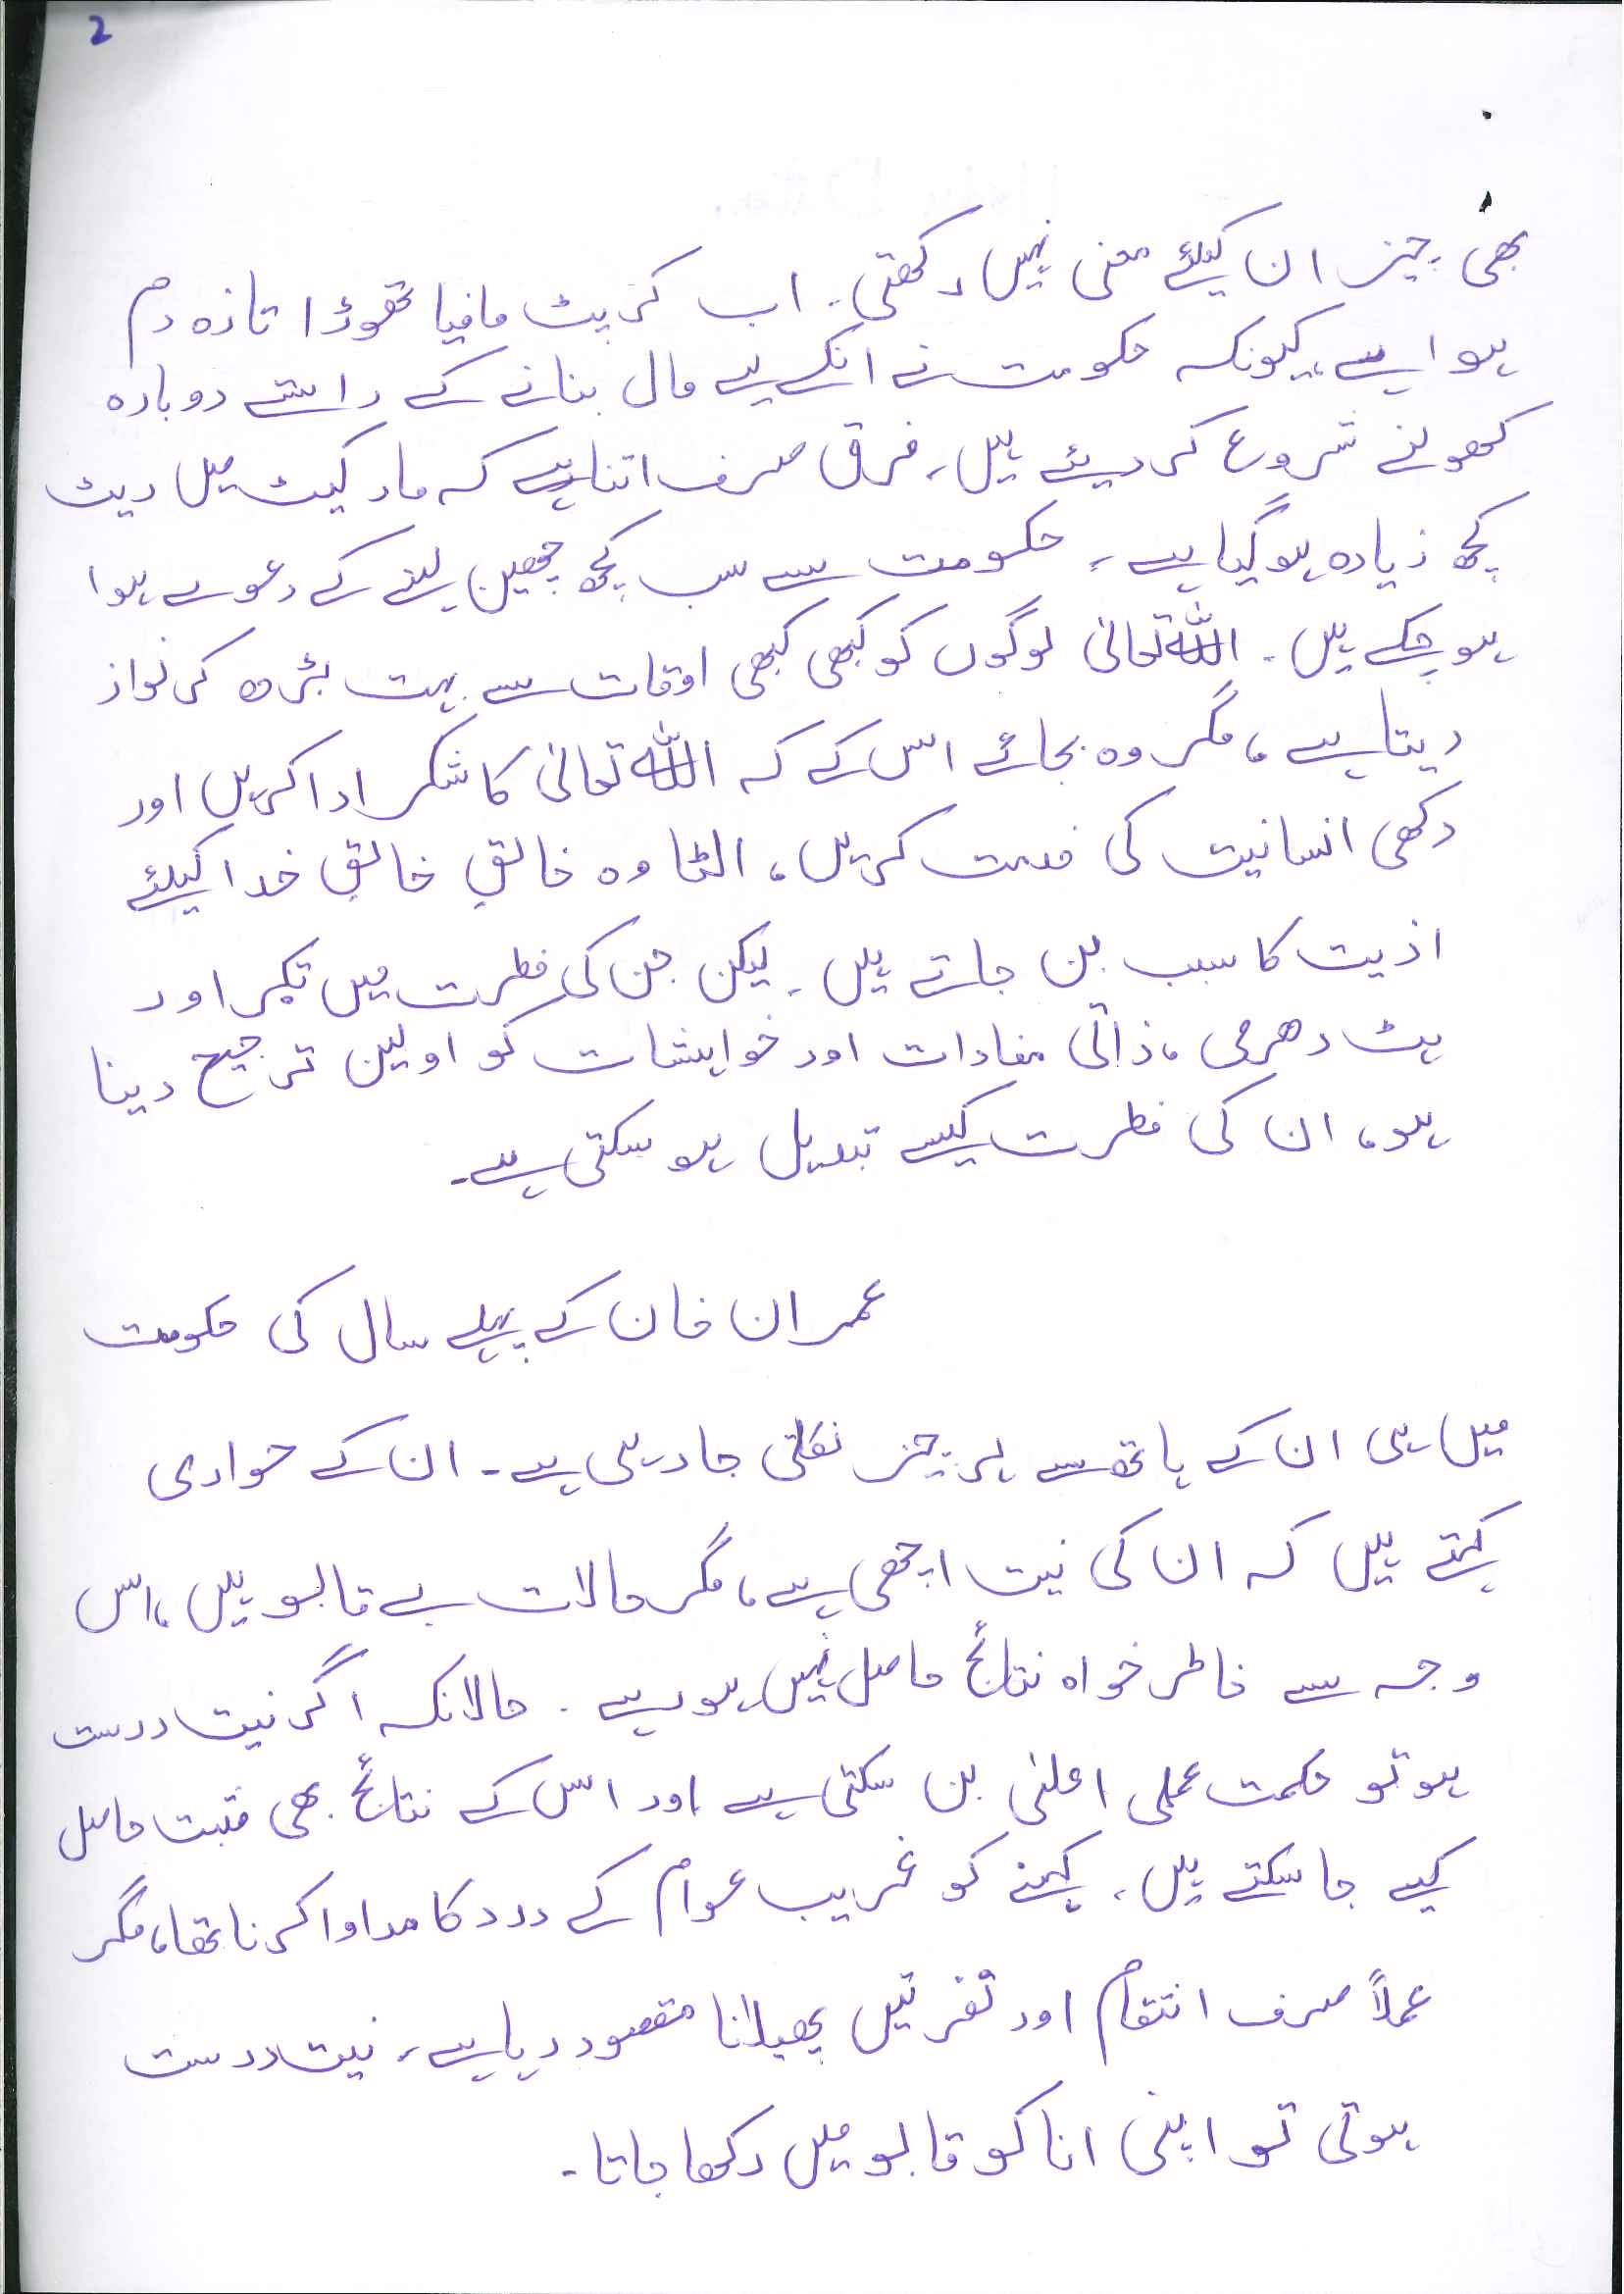 2
بھی چیز ان کیلئے معنی نہیں رکھتی. اب کرپٹ مافیا تھوڑا تازہ دم
ہوا ہے، کیونکہ حکومت نے انکے لیے مال بنانے کے راستے دوبارہ
کھولنے شروع کر دیئے ہیں، فرق صرف اتنا ہے کہ مارکیٹ میں ریٹ
کچھ زیادہ ہو گیا ہے، حکومت سے سب کچھ چھین لینے کے دعوے ہوا
ہو چکے ہیں. اللہ تعالیٰ لوگوں کو کبھی کبھی اوقات سے بہت بڑھ کر نواز
دیتا ہے، مگر وہ بجائے اس کے کہ اللہ تعالیٰ کا شکر ادا کریں اور
دکھی انسانیت کی خدمت کریں، الٹا وہ خالقِ خالقِ خدا کیلئے
اذیت کا سبب بن جاتے ہیں. لیکن جن کی فطرت میں تکبر اور
ہٹ دھرمی، ذاتی مفادات اور خواہشات کو اولین ترجیح دینا
ہو، ان کی فطرت کیسے تبدیل ہو سکتی ہے۔
عمران خان کے پہلے سال کی حکومت
میں ہی ان کے ہاتھ سے ہر چیز نکلتی جا رہی ہے۔ ان کے حواری
کہتے ہیں کہ ان کی نیت اچھی ہے، مگر حالات بے قابو ہیں، اس
وجہ سے خاطر خواہ نتائج حاصل نہیں ہو رہے. حالانکہ اگر نیت درست
ہو تو حکمت عملی اعلیٰ بن سکتی ہے اور اس کے نتائج بھی مثبت حاصل
کیے جا سکتے ہیں، کہنے کو غریب عوام کے درد کا مداوا کرنا تھا، مگر
عملاً صرف انتقام اور نفرتیں پھیلانا مقصود رہا ہے، نیت درست
ہوتی تو اپنی انا کو قابو میں رکھا جاتا۔